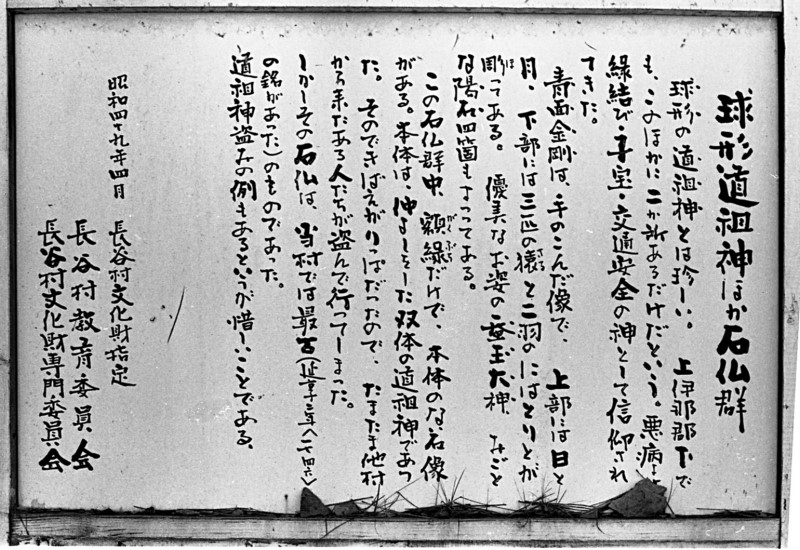 球形道祖神ほか石仏群
球形の道祖神とは珍しい。上伊那郡下で
も、このほかに二か所あるだけだという。悪病よけ
縁結び・子宝・交通安全の神として信仰され
てきた。
青面金剛は、手のこんだ像で、上部には日と
月、下部には三匹の猿と二羽のにはとりとが
彫ってある。優美なお姿の蚕玉大神、みごと
な陽石四箇もまつってある。
この石仏群中、額縁だけで、本体のな石像
がある。本体は、仲よしそした双体の道祖神であつ
た。そのできばえがりっぱだったので、たまたま他村
から来たある人たちが盗んで行ってしまった。
しかしその石仏は、当村では最古(延享三年〈一七四六〉
の銘があった)のものであった。
道祖神盗みの例もあるというが惜しいことである。
昭和四十九年四月 長谷村文化財指定
長谷村教育委員会
長谷村文化財専門委員会